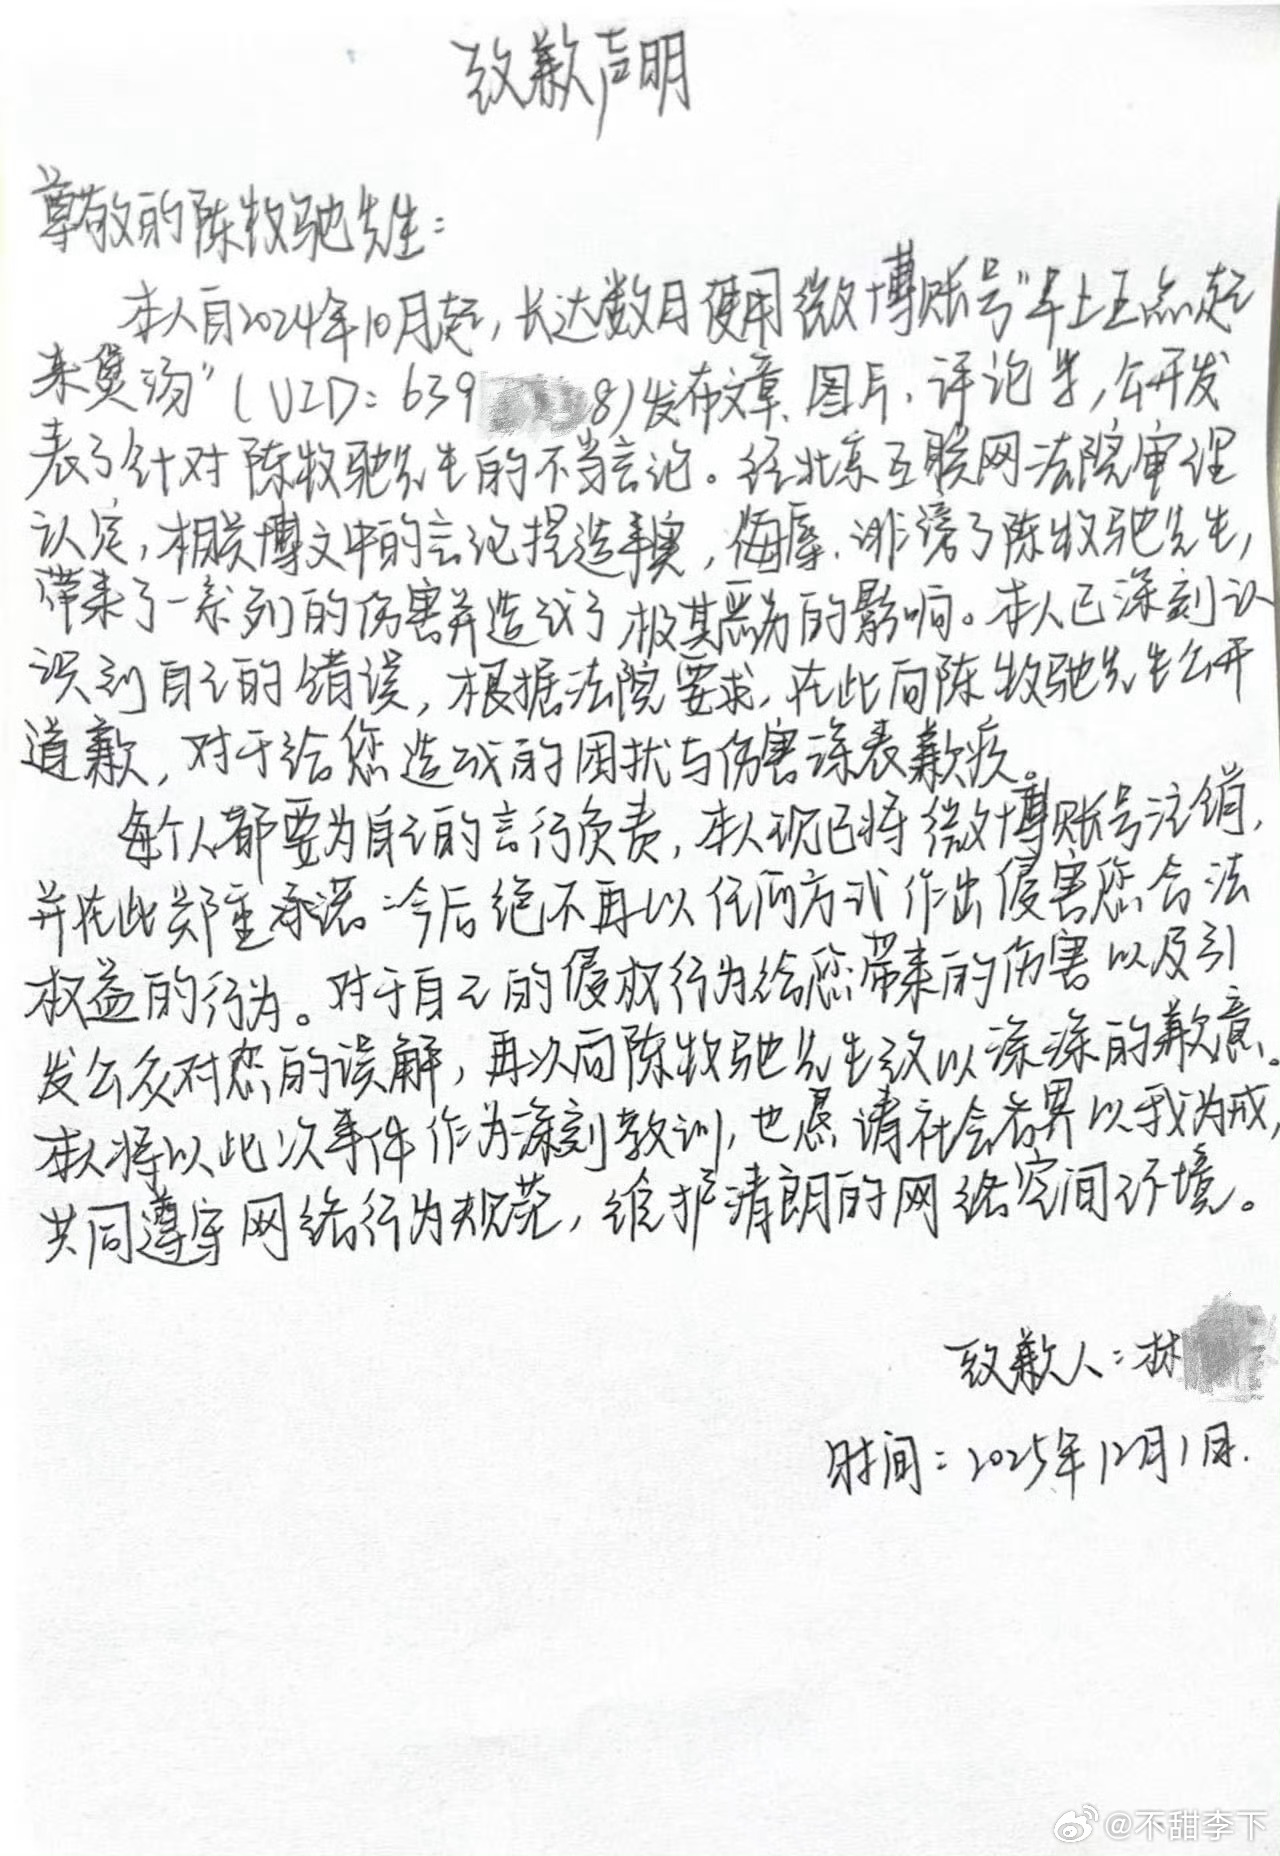 致歉声明
尊敬的陈牧驰先生：
本人自2024年10月起，长达数月使用微博账号"早上五点起
来煲汤"（UID：639 8)发布文章、图片、评论等，公开发
表了针对陈牧驰先生的不当言论。经北京互联网法院审理
认定，相关博文中的言论捏造事实，侮辱、诽谤了陈牧驰先生，
带来了一系列的伤害并造成了极其恶劣的影响。本人已深刻认
识到自己的错误，根据法院要求，在此向陈牧驰先生公开
道歉，对于给您造成的困扰与伤害深表歉疚。
每个人都要为自己的言行负责，本人现已将微博账号注销，
并在此郑重承诺：今后绝不再以任何方式作出侵害您合法
权益的行为。对于自己的侵权行为给您带来的伤害以及引
发公众对您的误解，再次向陈牧驰先生致以深深的歉意。
本人将以此次事件作为深刻教训，也恳请社会各界以我为戒，
共同遵守网络行为规范，维护清朗的网络空间环境。
致歉人：林
时间：2025年12月1日.
@不甜李下